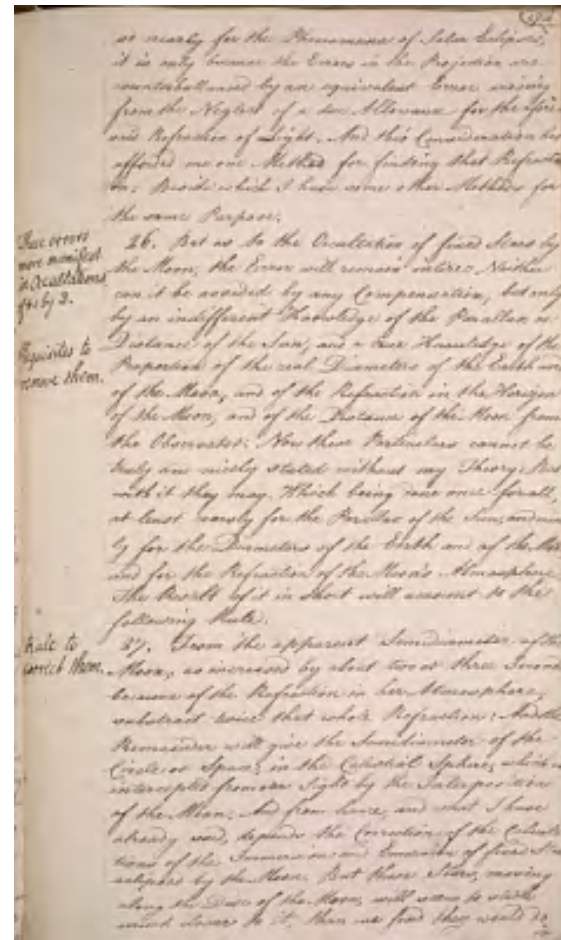 so nearly for the Phenomena of Solar Eclipses,
it is only because the Errors in the Projection are
counterballanced by an equivalent Error arising
from the Neglect of a due Allowance for the
and Refraction of Light. And this Consideration has
afforded me one Method for finding that Refracti
on: Beside which I have some other Methods for
the same Purpose.
These errors
more manifest
in Occultations
by
26. But as to the Occultation of fixed Stars by
the Moon, the Error will remain intire: Neither
can it be avoided by any Compensation, but only
by an indifferent Knowledge of the Parallax or
Distance of the Sun, and a true Knowledge of the
Proportion of the real Diameters of the Earth and
of the Moon, and of the Refraction in the Horizon
of the Moon, and of the Distance of the Moon from
the Observator: Now these Particulars cannot be
truly and nicely stated without my Theory. But
with it they may. Which being done once for all,
at least nearly for the Parallax of the Sun, and
ly for the Diameters of the Earth and of the
and for the Refraction of the Moon's Atmosphere
The Result of it in short will amount to the
following Rule.
Requisites to
remove them.
Rule to
correct them.
27. From the apparent Semidiameter of the
Moon, as increased by about two or three Second
because of the Refraction in her Atmosphere,
substract twice that whole Refraction: And the
Remainder will give the Semidiameter of the
Circle or Space, in the Celestial Sphere, which is
intercepted from our Sight by the Interposition
of the Moon. And from hence, and what I have
already said, depends the Correction of the Calcula
tions of the Immersion and Emersion of fixed
eclipsed by the Moon. But these Stars, moving
along the Disc of the Moon, will seem to
much slower to it, than we find they would do